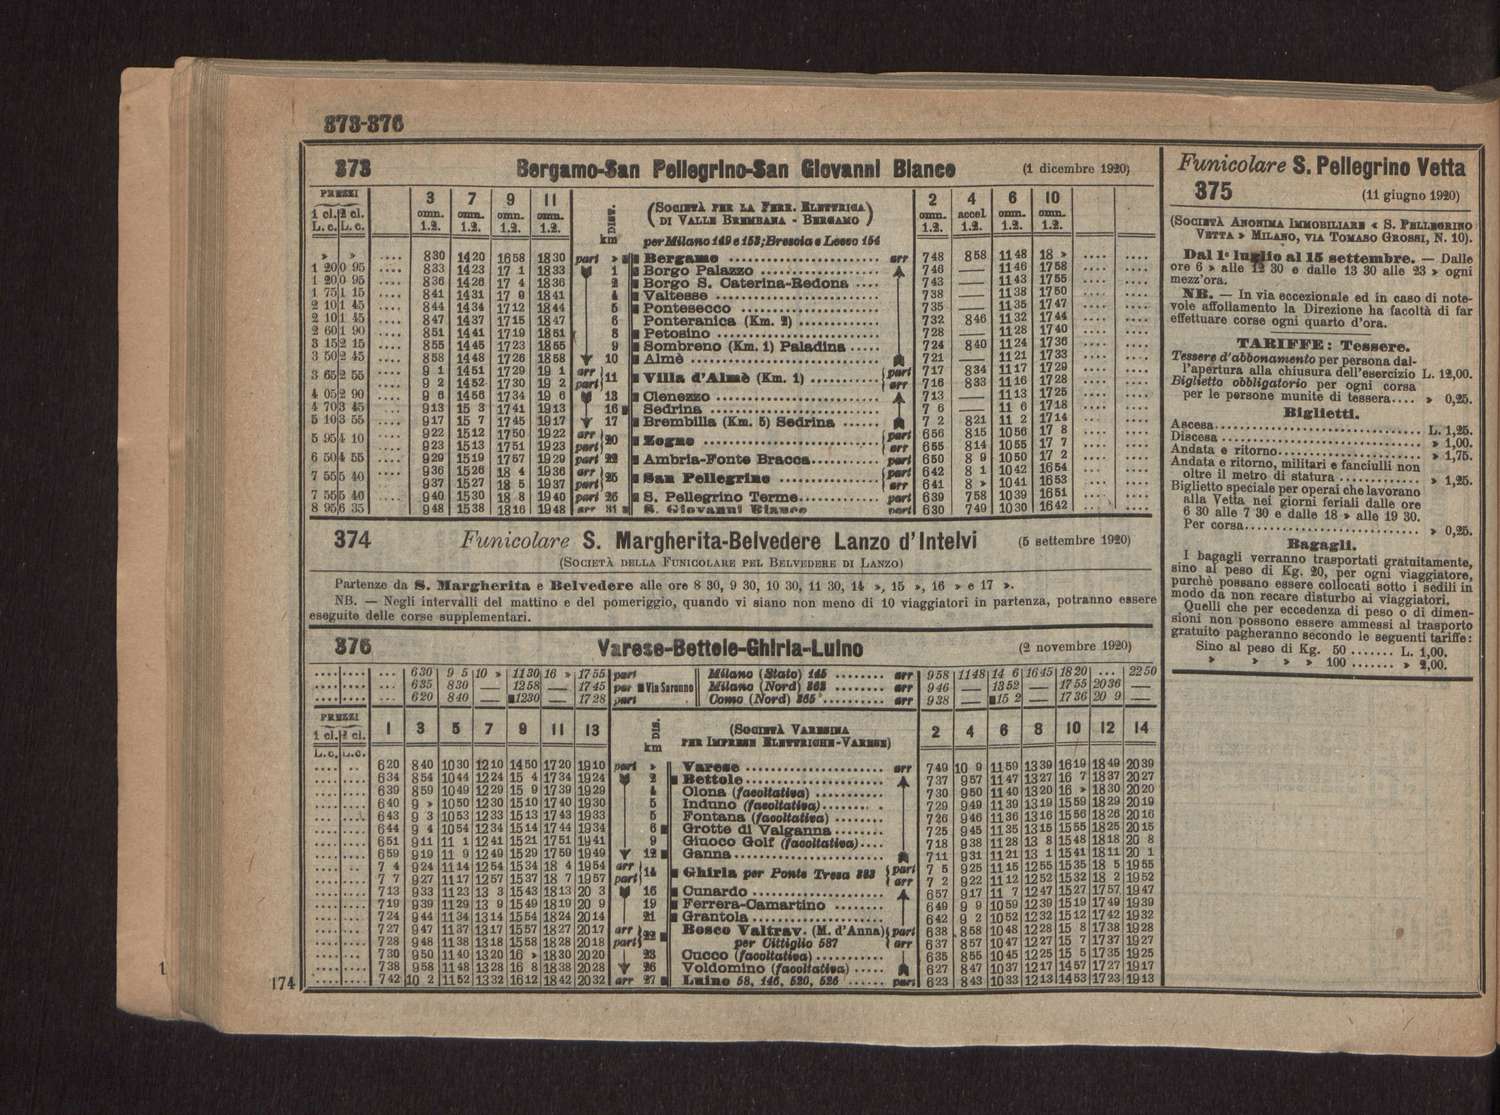 373-376
373 Bergamo-San Pellegrino-San Giovanni Bianco (1 dicembre 1920)
PREZZI
1 cl. 2 cl.
L. c. L. c.
3 7 9 11
omn. omn. omn. omn.
1.2. 1.2. 1.2. 1.2.
DIST. km
(SOCIETÀ PER LA FERR. ELETTRICA
DI VALLE BREMBANA - BERGAMO)
per Milano 149 e 153; Brescia e Lecco 154
2 4 6 10
omn. accel omn. omn.
1.2. 1.2. 1.2. 1.2.
» » .... 830 1420 1658 1830 part » Bergamo ........ arr 748 858 1148 18 » .... ....
1 20 0 95 .... 833 1423 17 1 1833 1 Borgo Palazzo ........ 746 — 1146 1758 .... ....
1 20 0 95 .... 836 1426 17 4 1836 2 Borgo S. Caterina-Redona .... 743 — 1143 1755 .... ....
1 75 1 15 .... 841 1431 17 9 1841 4 Valtesse ........ 738 — 1138 1750 .... ....
2 10 1 45 .... 844 1434 1712 1844 5 Pontesecco ........ 735 — 1135 1747 .... ....
2 10 1 45 .... 847 1437 1715 1847 6 Ponteranica (Km. 2) ........ 732 846 1132 1744 .... ....
2 60 1 90 .... 851 1441 1719 1851 8 Petosino ........ 728 — 1128 1740 .... ....
3 15 2 15 .... 855 1445 1723 1855 9 Sombreno (Km. 1) Paladina ..... 724 840 1124 1736 .... ....
3 50 2 45 .... 858 1448 1726 1858 10 Almè ........ 721 — 1121 1733 .... ....
3 65 2 55 .... 9 1 1451 1729 19 1 arr 11 Villa d'Almè (Km. 1) ........ part 717 834 1117 1729 .... ....
9 2 1452 1730 19 2 part arr 716 833 1116 1728
4 05 2 90 .... 9 6 1456 1734 19 6 13 Clenezzo ........ 713 — 1113 1725 .... ....
4 70 3 45 .... 913 15 3 1741 1913 16 Sedrina ........ 7 6 — 11 6 1718 .... ....
5 10 3 55 .... 917 15 7 1745 1917 17 Brembilla (Km. 5) Sedrina ...... 7 2 821 11 2 1714 .... ....
5 95 4 10 .... 922 1512 1750 1922 arr 20 Zogno ........ part 656 815 1056 17 8 .... ....
923 1513 1751 1923 part arr 655 814 1055 17 7
6 50 4 55 .... 929 1519 1757 1929 part 22 Ambria-Fonte Bracca........ part 650 8 9 1050 17 2 .... ....
7 55 5 40 .... 936 1526 18 4 1936 arr 25 San Pellegrino ........ part 642 8 1 1042 1654 .... ....
937 1527 18 5 1937 part arr 641 8 » 1041 1653
7 55 5 40 .... 940 1530 18 8 1940 part 26 S. Pellegrino Terme........ part 639 758 1039 1651 .... ....
8 95 6 35 .... 948 1538 1816 1948 arr 31 S. Giovanni Bianco part 630 749 1030 1642 .... ....
374 Funicolare S. Margherita-Belvedere Lanzo d'Intelvi (5 settembre 1920)
(SOCIETÀ DELLA FUNICOLARE PEL BELVEDERE DI LANZO)
Partenze da S. Margherita e Belvedere alle ore 8 30, 9 30, 10 30, 11 30, 14 », 15 », 16 » e 17 ».
NB. — Negli intervalli del mattino e del pomeriggio, quando vi siano non meno di 10 viaggiatori in partenza, potranno essere
eseguite delle corse supplementari.
376 Varese-Bettole-Ghirla-Luino (2 novembre 1920)
.... .... ... 630 9 5 10 » 1130 16 » 1755 part Milano (Stato) 145 ........ arr 958 1148 14 6 1645 1820 ... 2250
.... .... ... 635 830 — 1258 — 1745 par Via Saronno Milano (Nord) 363 ........ arr 946 — 1352 — 1755 2036 —
.... .... ... 620 840 — 1230 — 1728 part Como (Nord) 365 ........ arr 938 — 15 2 — 1736 20 9 —
PREZZI
1 cl. 2 cl.
L. c. L. c.
1 3 5 7 9 11 13
DIS. km
(SOCIETÀ VARESINA
PER IMPRESE ELETTRICHE-VARESE)
2 4 6 8 10 12 14
.... .. 620 840 1030 1210 1450 1720 1910 part » Varese ........ arr 749 10 9 1159 1339 1619 1849 2039
.... .... 634 854 1044 1224 15 4 1734 1924 2 Bettole ........ 737 957 1147 1327 16 7 1837 2027
.... .... 639 859 1049 1229 15 9 1739 1929 4 Olona (facoltativa) ........ 730 950 1140 1320 16 » 1830 2020
.... .... 640 9 » 1050 1230 1510 1740 1930 5 Induno (facoltativa)........ 729 949 1139 1319 1559 1829 2019
.... .... 643 9 3 1053 1233 1513 1743 1933 5 Fontana (facoltativa) ........ 726 946 1136 1316 1556 1826 2016
.... .... 644 9 4 1054 1234 1514 1744 1934 6 Grotte di Valganna ........ 725 945 1135 1315 1555 1825 2015
.... .... 651 911 11 1 1241 1521 1751 1941 9 Giuoco Golf (facoltativa).... 718 938 1128 13 8 1548 1818 20 8
.... .... 659 919 11 9 1249 1529 1759 1949 12 Ganna ........ 711 931 1121 13 1 1541 1811 20 1
.... .... 7 4 924 1114 1254 1534 18 4 1954 arr 14 Ghirla per Ponte Tresa 383 part 7 5 925 1115 1255 1535 18 5 1955
.... .... 7 7 927 1117 1257 1537 18 7 1957 part arr 7 2 922 1112 1252 1532 18 2 1952
.... .... 713 933 1123 13 3 1543 1813 20 3 16 Cunardo ........ 657 917 11 7 1247 1527 1757 1947
.... .... 719 939 1129 13 9 1549 1819 20 9 19 Ferrera-Camartino ........ 649 9 9 1059 1239 1519 1749 1939
.... .... 724 944 1134 1314 1554 1824 2014 21 Grantola ........ 642 9 2 1052 1232 1512 1742 1932
.... .... 727 947 1137 1317 1557 1827 2017 arr 22 Bosco Valtrav. (M. d'Anna) part 638 858 1048 1228 15 8 1738 1928
.... .... 728 948 1138 1318 1558 1828 2018 part per Cittiglio 587 arr 637 857 1047 1227 15 7 1737 1927
.... .... 730 950 1140 1320 16 » 1830 2020 23 Cucco (facoltativa) ........ 635 855 1045 1225 15 5 1735 1925
.... .... 738 958 1148 1328 16 8 1838 2028 26 Voldomino (facoltativa) ...... 627 847 1037 1217 1457 1727 1917
.... .... 742 10 2 1152 1332 1612 1842 2032 arr 27 Luino 58, 146, 520, 526 ...... part 623 843 1033 1213 1453 1723 1913
Funicolare S. Pellegrino Vetta
375 (11 giugno 1920)
(SOCIETÀ ANONIMA IMMOBILIARE « S. PELLEGRINO
VETTA » MILANO, VIA TOMASO GROSSI, N. 10).
Dal 1° luglio al 15 settembre. — Dalle
ore 6 » alle 12 30 e dalle 13 30 alle 23 » ogni
mezz'ora.
NB. — In via eccezionale ed in caso di note-
vole affollamento la Direzione ha facoltà di far
effettuare corse ogni quarto d'ora.
TARIFFE: Tessere.
Tessere d'abbonamento per persona dal-
l'apertura alla chiusura dell'esercizio L. 12,00.
Biglietto obbligatorio per ogni corsa
per le persone munite di tessera.... » 0,25.
Biglietti.
Ascesa........ L. 1,25.
Discesa ........ » 1,00.
Andata e ritorno........ » 1,75.
Andata e ritorno, militari e fanciulli non
oltre il metro di statura ........ » 1,25.
Biglietto speciale per operai che lavorano
alla Vetta nei giorni feriali dalle ore
6 30 alle 7 30 e dalle 18 » alle 19 30.
Per corsa........ » 0,25.
Bagagli.
I bagagli verranno trasportati gratuitamente,
sino al peso di Kg. 20, per ogni viaggiatore,
purchè possano essere collocati sotto i sedili in
modo da non recare disturbo ai viaggiatori.
Quelli che per eccedenza di peso o di dimen-
sioni non possono essere ammessi al trasporto
gratuito pagheranno secondo le seguenti tariffe:
Sino al peso di Kg. 50 ....... L. 1,00.
» » » » 100 ....... » 2,00.
174
1